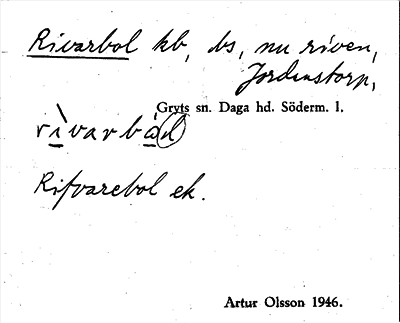 Rivarbol kb, bs, nu riven,
Jordanstorp,
Gryts sn. Daga hd. Söderm. l.
rìvarbál
Rifvarebol ek.
Artur Olsson 1946.